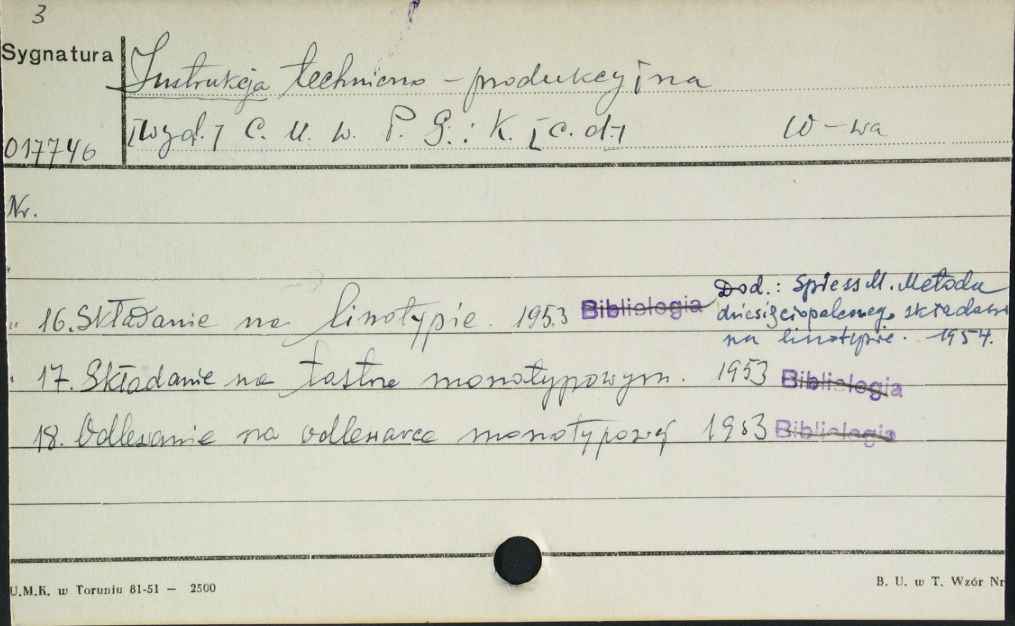 3
Sygnatura
Instrukcja techniczno – produkcyjna
017746
[Wyd.] C. U. W. P. G. : K. [c. d.] W – wa
Nr.
" 16. Składanie na linotypie. 1953 Bibliologia Dod.: Spiess M. Metoda
dziesięciopalcowego składania
na linotypie. 1954.
" 17. Składanie na tastrze monotypowym. 1953 Bibliologia
18. Odlewanie na odlewarce monotypowej 1953 Bibliologia
U.M.K. w Toruniu 81-51 — 2500
B. U. w T. Wzór Nr